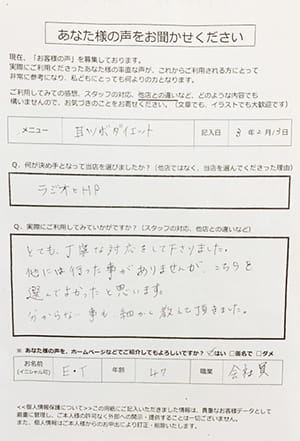 あなた様の声をお聞かせください
現在、「お客様の声」を募集しております。
実際にご利用くださったあなた様の率直な声が、これからご利用される方にとって
非常に参考になり、私どもにとっても何よりの力となります。
ご利用してみての感想、スタッフの対応、他店との違いなど、どのような内容でも
構いませんので、お気づきのことをお寄せください。（文章でも、イラストでも大歓迎です）
メニュー 耳ツボダイエット 記入日 3年2月13日
Q．何が決め手となって当店を選びましたか？（他店ではなく、当店を選んでくださった理由）
ラジオとHP
Q．実際にご利用してみていかがですか？（スタッフの対応、他店との違いなど）
とても、丁寧な対応をして下さりました。
他には行った事がありませんが、こちらを
選んでよかったと思います。
分からない事も細かく教えて頂きました。
※ あなた様の声を、ホームページなどでご紹介してもよろしいですか？ □はい □仮名で □ダメ
お名前
(イニシャル可) E・T 年齢 47 職業 会社員
<<個人情報保護について>>この用紙にご記入いただきました情報は、貴重なお客様データとして
厳重に管理し、ご本人様の許可なく外部への開示・提供することは一切ございません。
また、個人情報はご本人様からのお申出により訂正・削除いたします。